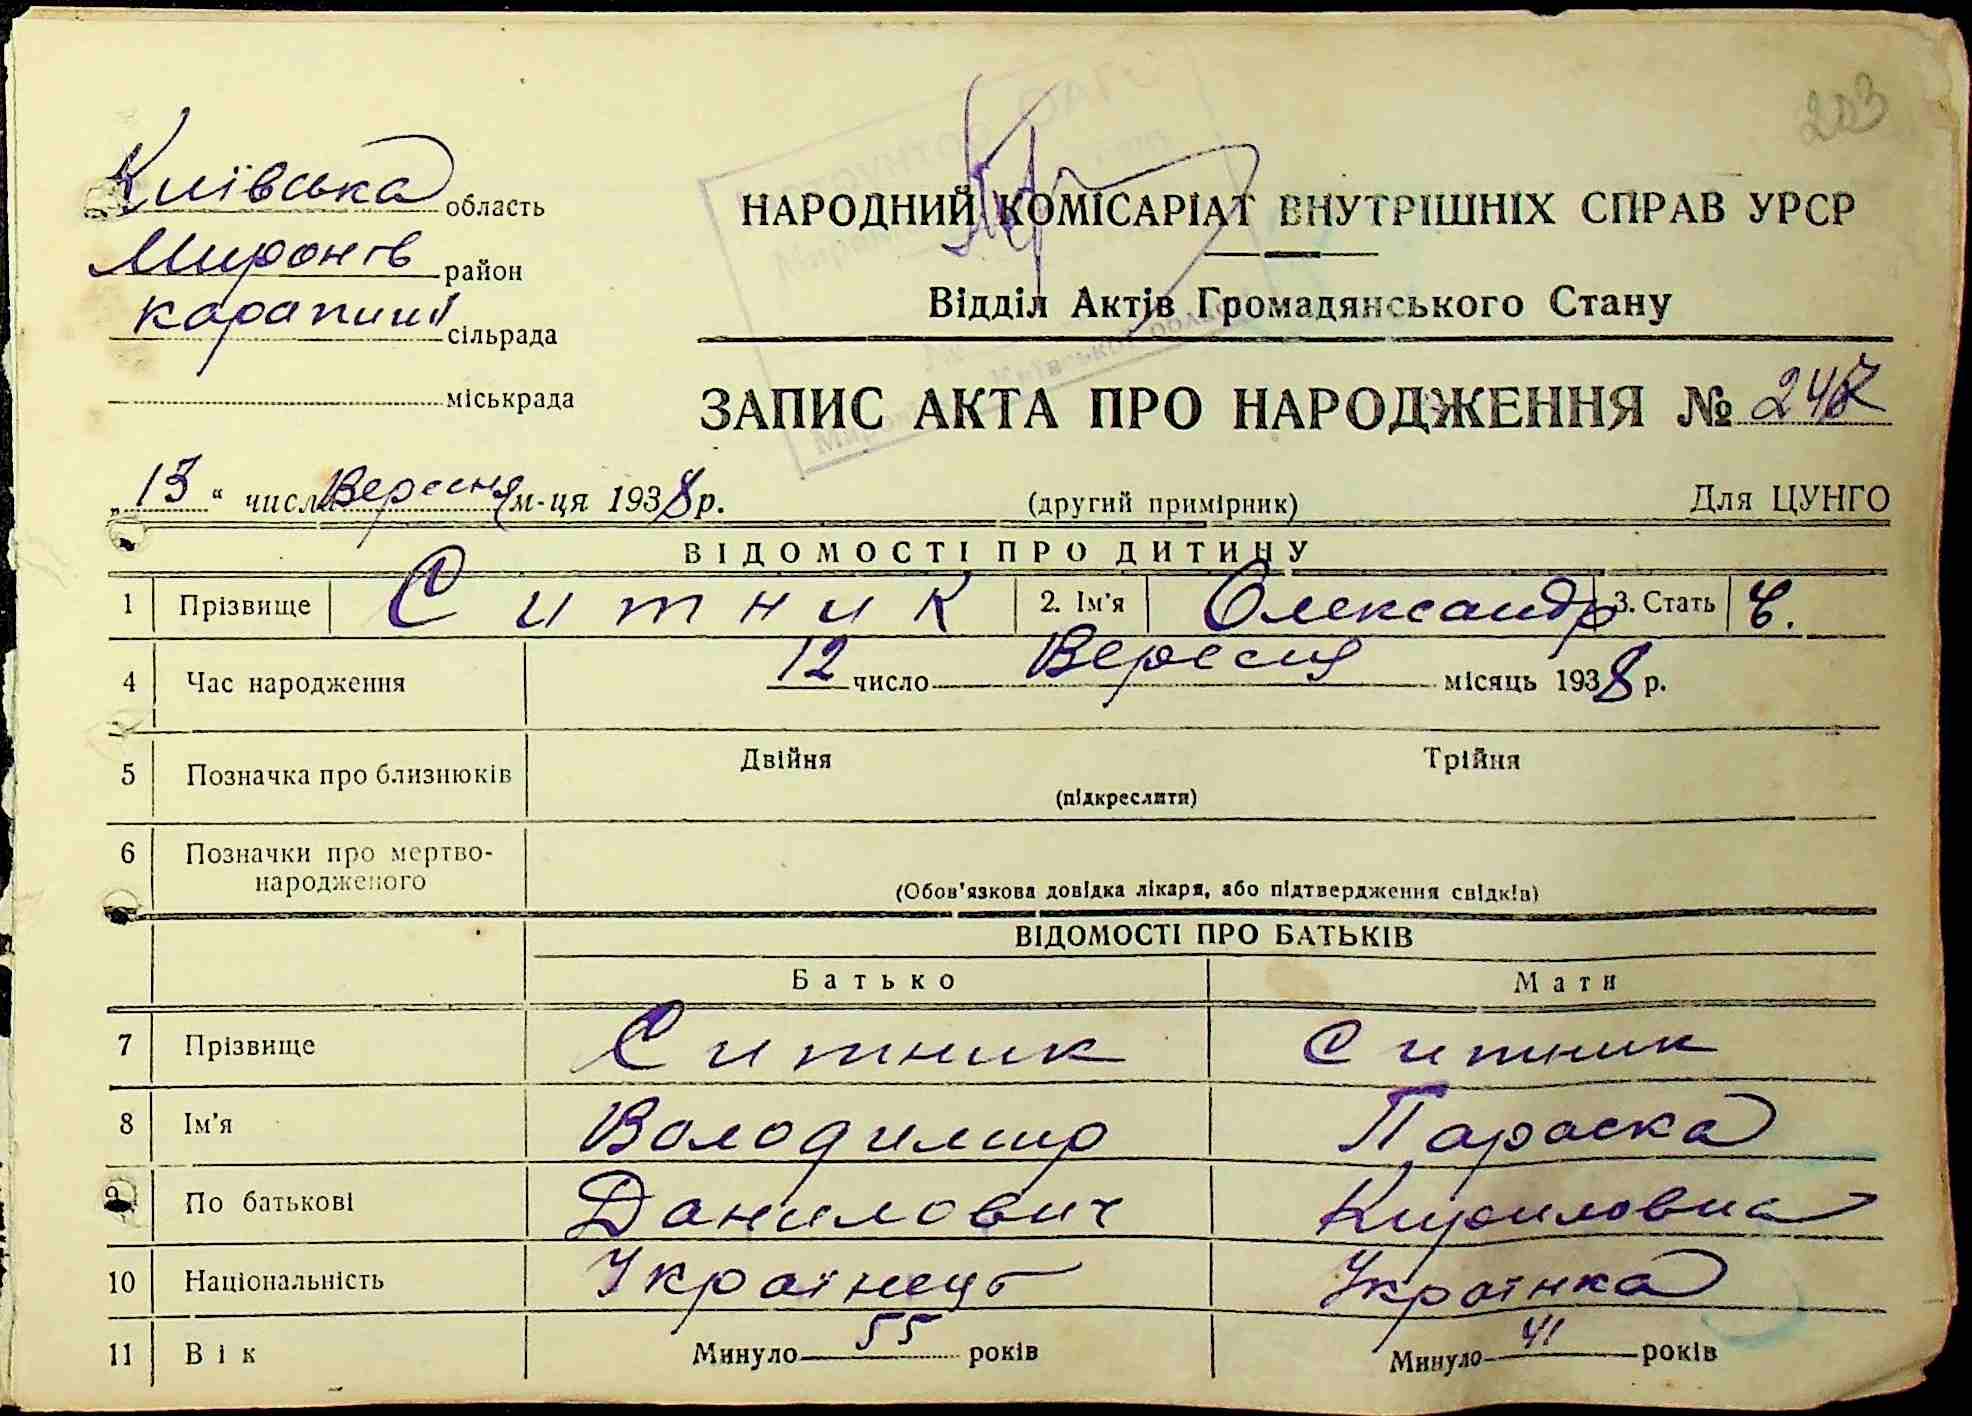 203
Київська область
Миронів район
Карапиші сільрада
міськрада
НАРОДНИЙ КОМІСАРІАТ ВНУТРІШНІХ СПРАВ УРСР
Відділ Актів Громадянського Стану
ЗАПИС АКТА ПРО НАРОДЖЕННЯ №
„13“ числа Вересня м-ця 1938 р. (другий примірник) Для ЦУНГО
ВІДОМОСТІ ПРО ДИТИНУ
1 Прізвище Ситник 2. Ім'я Олександр 3. Стать Ч.
4 Час народження 12 число Вересня місяць 1938 р.
5 Позначка про близнюків Двійня Трійня
(підкреслити)
6 Позначки про мертво-
народженого
(Обов'язкова довідка лікаря, або підтвердження свідків)
ВІДОМОСТІ ПРО БАТЬКІВ
Батько Мати
7 Прізвище Ситник Ситник
8 Ім'я Володимир Параска
9 По батькові Данилович Кириловна
10 Національність Українець Українка
11 Вік Минуло 55 років Минуло 41 років